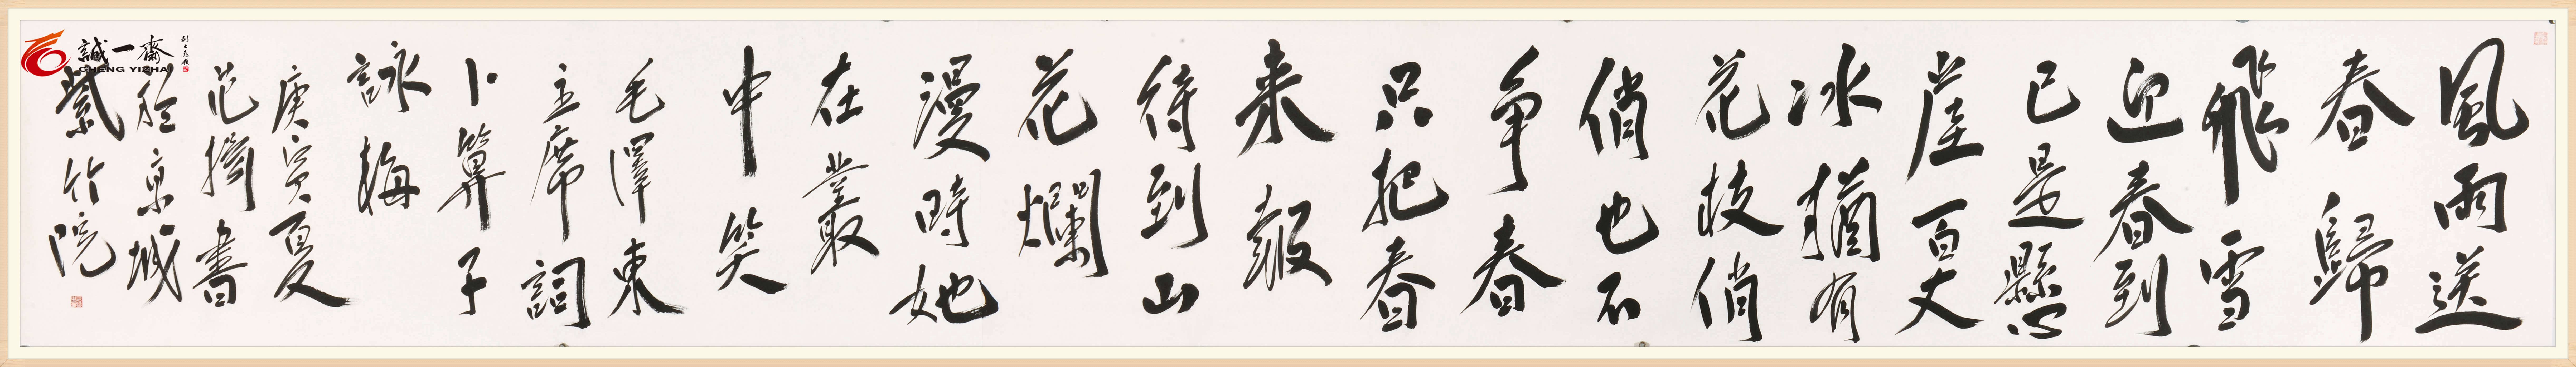 風雨送
春歸
飛雪
迎春到
已是懸
崖百丈
冰猶有
花枝俏
俏也不
争春
只把春
来報
待到山
花爛
漫時她
在叢
中笑
毛澤東
主席詞
卜算子
詠梅
庚寅夏
范擕書
於京城
紫竹院
誠一齋
CHENG YIZHAI